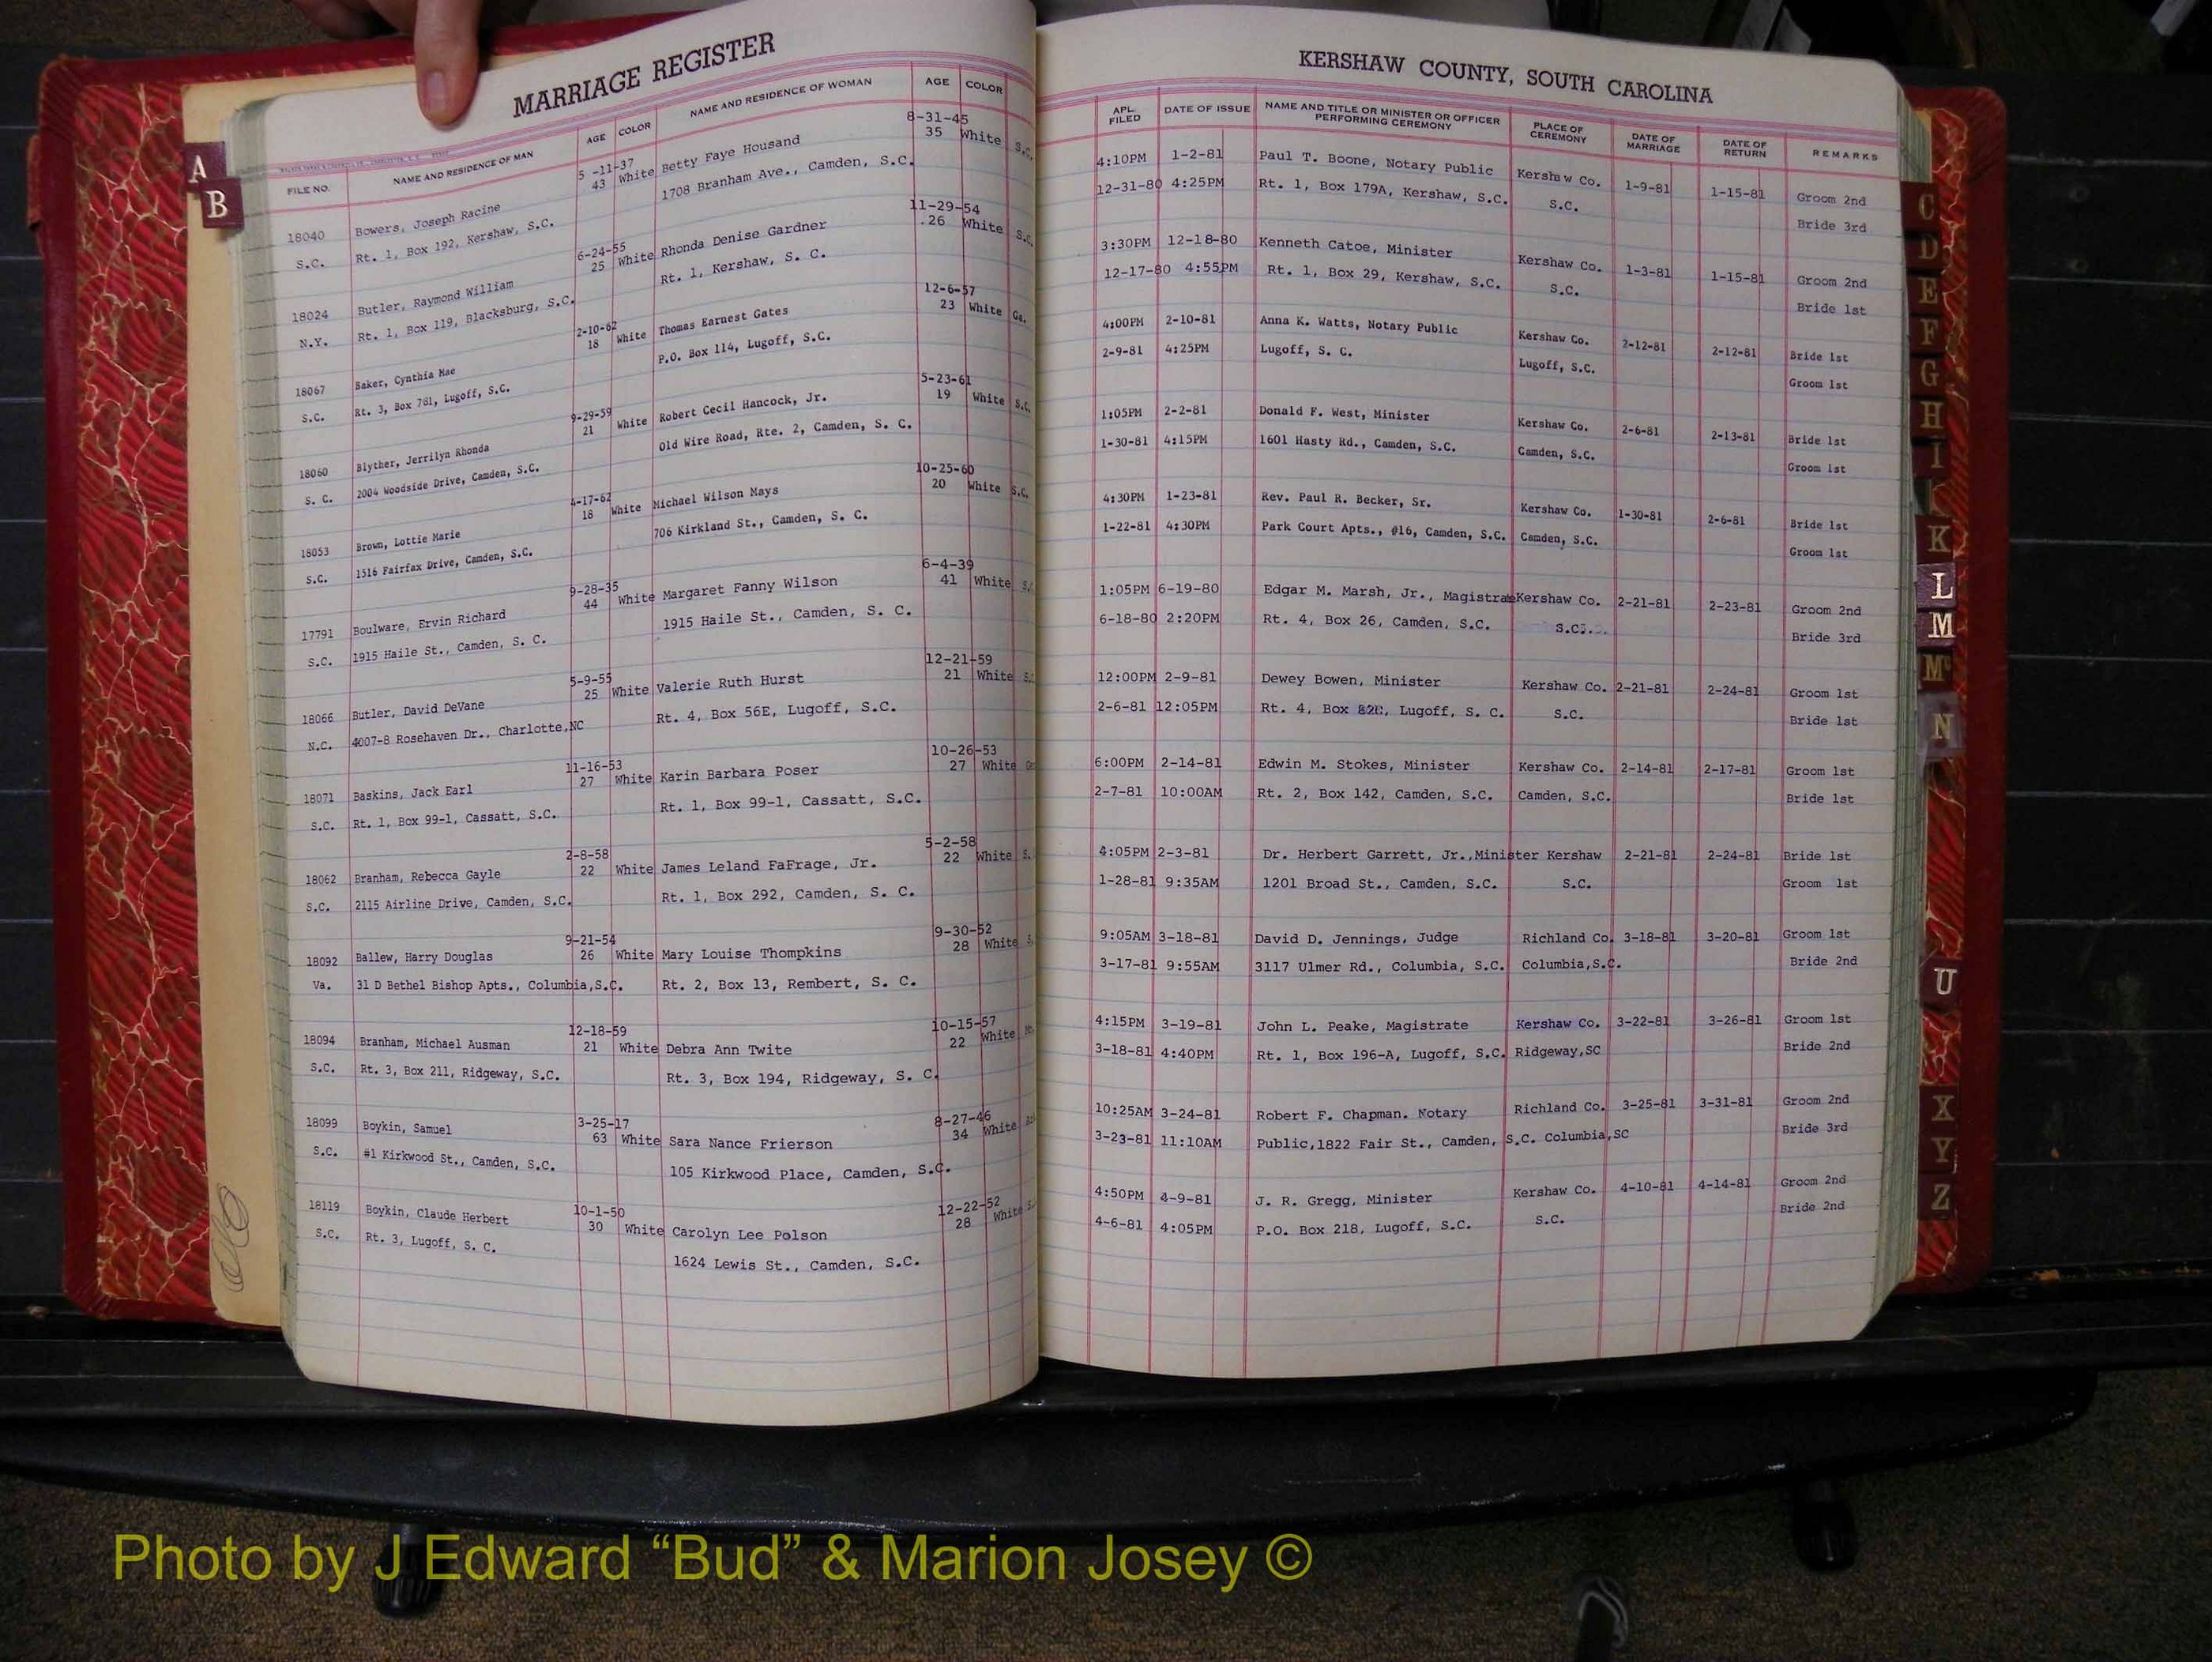 MARRIAGE REGISTER
FILE NO. NAME AND RESIDENCE OF MAN AGE COLOR NAME AND RESIDENCE OF WOMAN AGE COLOR
5 -11-37 8-31-45
18040 Bowers, Joseph Racine 43 White Betty Faye Housand 35 White S.C.
S.C. Rt. 1, Box 192, Kershaw, S.C. 1708 Branham Ave., Camden, S.C.
6-24-55 11-29-54
18024 Butler, Raymond William 25 White Rhonda Denise Gardner 26 White S.C.
N.Y. Rt. 1, Box 119, Blacksburg, S.C. Rt. 1, Kershaw, S. C.
2-10-62 12-6-57
18067 Baker, Cynthia Mae 18 White Thomas Earnest Gates 23 White Ga.
S.C. Rt. 3, Box 781, Lugoff, S.C. P.O. Box 114, Lugoff, S.C.
9-29-59 5-23-61
18060 Blyther, Jerrilyn Rhonda 21 White Robert Cecil Hancock, Jr. 19 White S.C.
S. C. 2004 Woodside Drive, Camden, S.C. Old Wire Road, Rte. 2, Camden, S. C.
4-17-62 10-25-60
18053 Brown, Lottie Marie 18 White Michael Wilson Mays 20 White S.C.
S.C. 1516 Fairfax Drive, Camden, S.C. 706 Kirkland St., Camden, S. C.
9-28-35 6-4-39
17791 Boulware, Ervin Richard 44 White Margaret Fanny Wilson 41 White
S.C. 1915 Haile St., Camden, S. C. 1915 Haile St., Camden, S. C.
5-9-55 12-21-59
18066 Butler, David DeVane 25 White Valerie Ruth Hurst 21 White
N.C. 4007-8 Rosehaven Dr., Charlotte,NC Rt. 4, Box 56E, Lugoff, S.C.
11-16-53 10-26-53
18071 Baskins, Jack Earl 27 White Karin Barbara Poser 27 White
S.C. Rt. 1, Box 99-1, Cassatt, S.C. Rt. 1, Box 99-1, Cassatt, S.C.
2-8-58 5-2-58
18062 Branham, Rebecca Gayle 22 White James Leland FaFrage, Jr. 22 White
S.C. 2115 Airline Drive, Camden, S.C. Rt. 1, Box 292, Camden, S. C.
9-21-54 9-30-52
18092 Ballew, Harry Douglas 26 White Mary Louise Thompkins 28 White
Va. 31 D Bethel Bishop Apts., Columbia,S.C. Rt. 2, Box 13, Rembert, S. C.
12-18-59 10-15-57
18094 Branham, Michael Ausman 21 White Debra Ann Twite 22 White
S.C. Rt. 3, Box 211, Ridgeway, S.C. Rt. 3, Box 194, Ridgeway, S. C.
3-25-17 8-27-46
18099 Boykin, Samuel 63 White Sara Nance Frierson 34 White
S.C. #1 Kirkwood St., Camden, S.C. 105 Kirkwood Place, Camden, S.C.
10-1-50 12-22-52
18119 Boykin, Claude Herbert 30 White Carolyn Lee Polson 28 White
S.C. Rt. 3, Lugoff, S. C. 1624 Lewis St., Camden, S.C.
KERSHAW COUNTY, SOUTH CAROLINA
APL. FILED DATE OF ISSUE NAME AND TITLE OR MINISTER OR OFFICER PERFORMING CEREMONY PLACE OF CEREMONY DATE OF MARRIAGE DATE OF RETURN REMARKS
4:10PM 1-2-81 Paul T. Boone, Notary Public Kershaw Co. 1-9-81 1-15-81 Groom 2nd
12-31-80 4:25PM Rt. 1, Box 179A, Kershaw, S.C. S.C. Bride 3rd
3:30PM 12-18-80 Kenneth Catoe, Minister Kershaw Co. 1-3-81 1-15-81 Groom 2nd
12-17-80 4:55PM Rt. 1, Box 29, Kershaw, S.C. S.C. Bride 1st
4:00PM 2-10-81 Anna K. Watts, Notary Public Kershaw Co. 2-12-81 2-12-81 Bride 1st
2-9-81 4:25PM Lugoff, S. C. Lugoff, S.C. Groom 1st
1:05PM 2-2-81 Donald F. West, Minister Kershaw Co. 2-6-81 2-13-81 Bride 1st
1-30-81 4:15PM 1601 Hasty Rd., Camden, S.C. Camden, S.C. Groom 1st
4:30PM 1-23-81 Rev. Paul R. Becker, Sr. Kershaw Co. 1-30-81 2-6-81 Bride 1st
1-22-81 4:30PM Park Court Apts., #16, Camden, S.C. Camden, S.C. Groom 1st
1:05PM 6-19-80 Edgar M. Marsh, Jr., Magistrate Kershaw Co. 2-21-81 2-23-81 Groom 2nd
6-18-80 2:20PM Rt. 4, Box 26, Camden, S.C. S.C. Bride 3rd
12:00PM 2-9-81 Dewey Bowen, Minister Kershaw Co. 2-21-81 2-24-81 Groom 1st
2-6-81 12:05PM Rt. 4, Box Lugoff, S. C. S.C. Bride 1st
6:00PM 2-14-81 Edwin M. Stokes, Minister Kershaw Co. 2-14-81 2-17-81 Groom 1st
2-7-81 10:00AM Rt. 2, Box 142, Camden, S.C. Camden, S.C. Bride 1st
4:05PM 2-3-81 Dr. Herbert Garrett, Jr.,Minister Kershaw 2-21-81 2-24-81 Bride 1st
1-28-81 9:35AM 1201 Broad St., Camden, S.C. S.C. Groom 1st
9:05AM 3-18-81 David D. Jennings, Judge Richland Co. 3-18-81 3-20-81 Groom 1st
3-17-81 9:55AM 3117 Ulmer Rd., Columbia, S.C. Columbia,S.C. Bride 2nd
4:15PM 3-19-81 John L. Peake, Magistrate Kershaw Co. 3-22-81 3-26-81 Groom 1st
3-18-81 4:40PM Rt. 1, Box 196-A, Lugoff, S.C. Ridgeway,SC Bride 2nd
10:25AM 3-24-81 Robert F. Chapman. Notary Richland Co. 3-25-81 3-31-81 Groom 2nd
3-23-81 11:10AM Public,1822 Fair St., Camden, S.C. Columbia,SC Bride 3rd
4:50PM 4-9-81 J. R. Gregg, Minister Kershaw Co. 4-10-81 4-14-81 Groom 2nd
4-6-81 4:05PM P.O. Box 218, Lugoff, S.C. S.C. Bride 2nd
A
B
C
D
E
F
G
H
I
K
L
M
Mc
N
U
X
Y
Z
Photo by J Edward “Bud” & Marion Josey ©